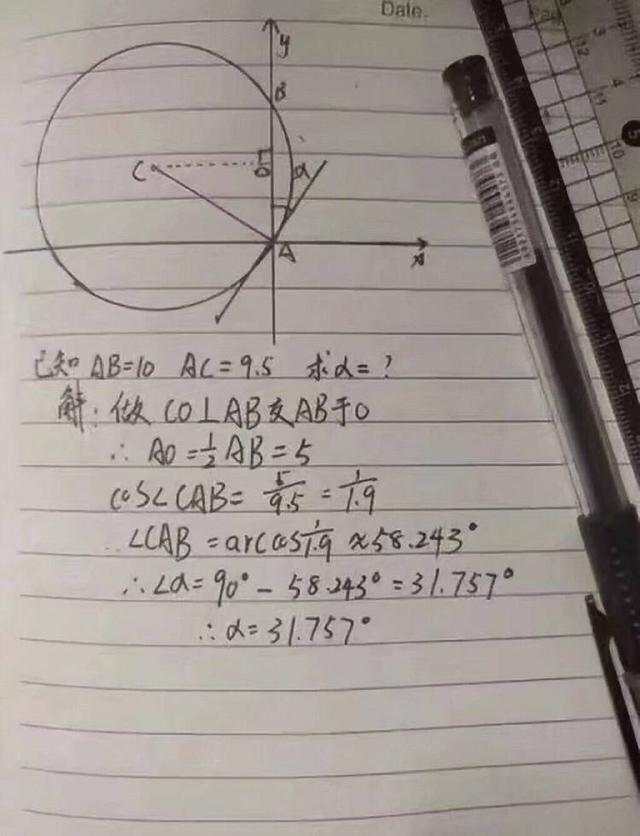 Date.
y
B
C
O
α
A
x
已知 AB=10 AC=9.5 求α=?
解:做 CO⊥AB交AB于O
∴ AO=1/2AB=5
cos∠CAB=5/9.5=1/1.9
∴∠CAB=arccos1/1.9≈58.243°
∴∠α=90°-58.243°=31.757°
∴α=31.757°